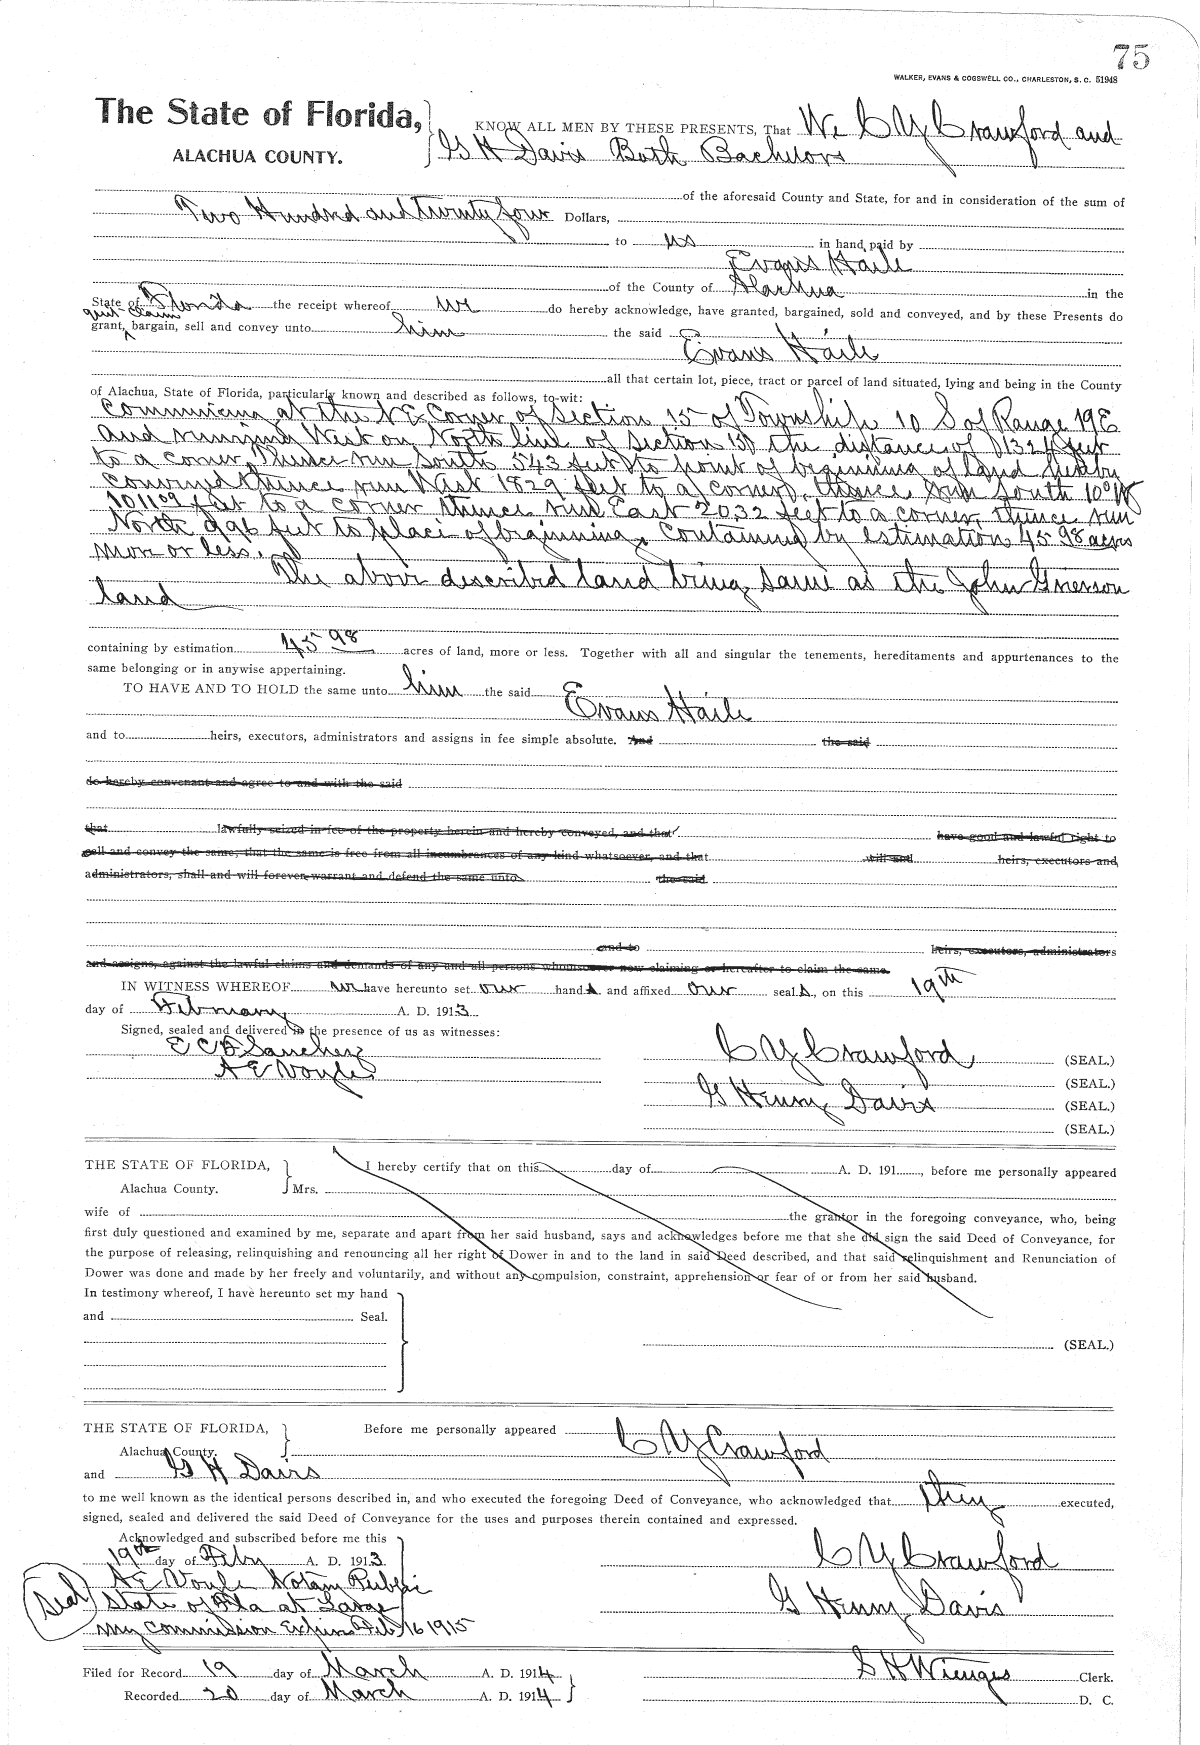 75
WALKER, EVANS & COGSWELL CO., CHARLESTON, S. C. 51948
The State of Florida,
ALACHUA COUNTY.
KNOW ALL MEN BY THESE PRESENTS, That We C Y Crawford and
G H Davis Both Bachelors
of the aforesaid County and State, for and in consideration of the sum of
Two Hundred and twenty four Dollars,
to us in hand paid by
Evans Haile
of the County of Alachua in the
State of Florida the receipt whereof we do hereby acknowledge, have granted, bargained, sold and conveyed, and by these Presents do
quit-claim
grant, bargain, sell and convey unto him the said
Evans Haile
all that certain lot, piece, tract or parcel of land situated, lying and being in the County
of Alachua, State of Florida, particularly known and described as follows, to-wit:
Commencing at the N E Corner of Section 15 of Township 10 S of Range 19 E
and running West on North line of section 15 the distance of 1324 feet
to a corner, thence run South 543 feet to point of beginning of land hereby
conveyed thence run West 1829 feet to a corner, thence run South 10° W
1011.09 feet to a corner thence run East 2032 feet to a corner, thence run
North 996 feet to place of beginning, Containing by estimation 45 98 acres
more or less.
The above described land being same as the John Grierson
land
containing by estimation 45 98 acres of land, more or less. Together with all and singular the tenements, hereditaments and appurtenances to the
same belonging or in anywise appertaining.
TO HAVE AND TO HOLD the same unto him the said
Evans Haile
and to heirs, executors, administrators and assigns in fee simple absolute. And the said
do hereby convenant and agree to and with the said
that lawfully seized in fee of the property herein and hereby conveyed, and that have good and lawful right to
sell and convey the same; that the same is free from all incumbrances of any kind whatsoever, and that will and heirs, executors and
administrators, shall and will forever warrant and defend the same unto the said
and to heirs, executors, administrators
and assigns, against the lawful claims and demands of any and all persons whomsoever now claiming or hereafter to claim the same.
IN WITNESS WHEREOF we have hereunto set our hands and affixed our seals, on this 19th
day of February A. D. 1913
Signed, sealed and delivered in the presence of us as witnesses:
E C F Sanchez
A E Voyle
C Y Crawford (SEAL.)
(SEAL.)
G Henry Davis (SEAL.)
(SEAL.)
THE STATE OF FLORIDA, I hereby certify that on this day of A. D. 191 , before me personally appeared
Alachua County. Mrs.
wife of the grantor in the foregoing conveyance, who, being
first duly questioned and examined by me, separate and apart from her said husband, says and acknowledges before me that she did sign the said Deed of Conveyance, for
the purpose of releasing, relinquishing and renouncing all her right of Dower in and to the land in said Deed described, and that said relinquishment and Renunciation of
Dower was done and made by her freely and voluntarily, and without any compulsion, constraint, apprehension or fear of or from her said husband.
In testimony whereof, I have hereunto set my hand
and Seal.
(SEAL.)
THE STATE OF FLORIDA, Before me personally appeared C Y Crawford
Alachua County.
and G H Davis
to me well known as the identical persons described in, and who executed the foregoing Deed of Conveyance, who acknowledged that they executed,
signed, sealed and delivered the said Deed of Conveyance for the uses and purposes therein contained and expressed.
Acknowledged and subscribed before me this
19th day of Feby A. D. 1913
C Y Crawford
A E Voyle Notary Public
Seal
State of Fla at Large
G Henry Davis
My commission Expires Feb 16 1915
Filed for Record 19 day of March A. D. 1914
S H Wienges Clerk.
Recorded 20 day of March A. D. 1914
D. C.